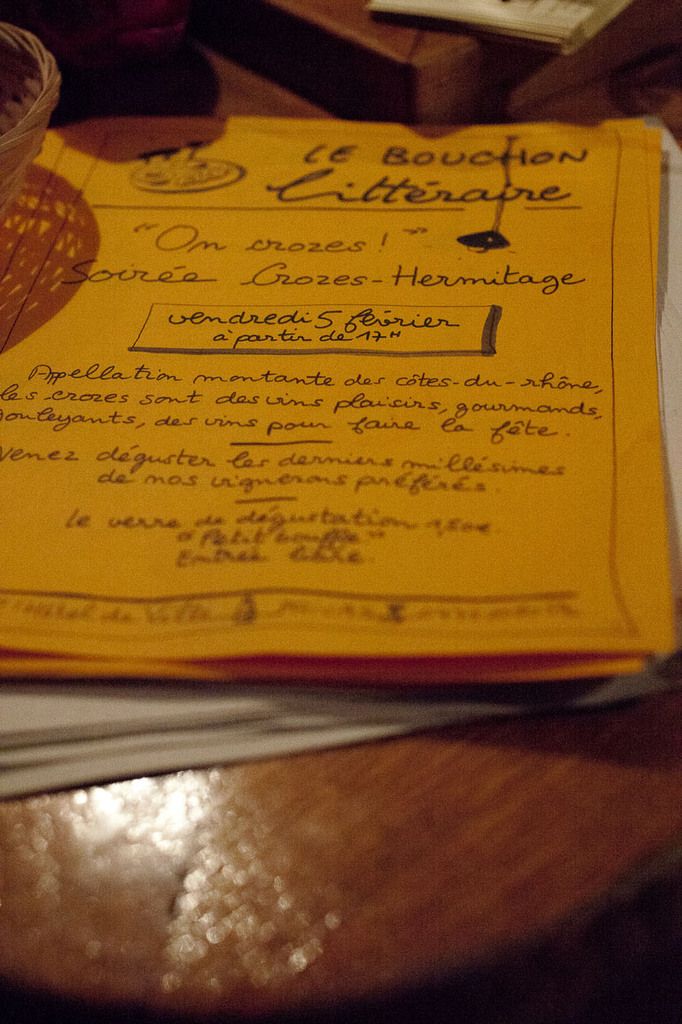 LE BOUCHON
littéraire
"On crozes!"
Soirée Crozes-Hermitage
vendredi 5 février
à partir de 17H
Appellation montante des côtes-du-rhône,
les crozes sont des vins plaisirs, gourmands,
gouleyants, des vins pour faire la fête.
Venez déguster les derniers millésimes
de nos vignerons préférés.
le verre de dégustation 1,50€
"Petit bouffe"
Entrée libre.
Hôtel de Ville